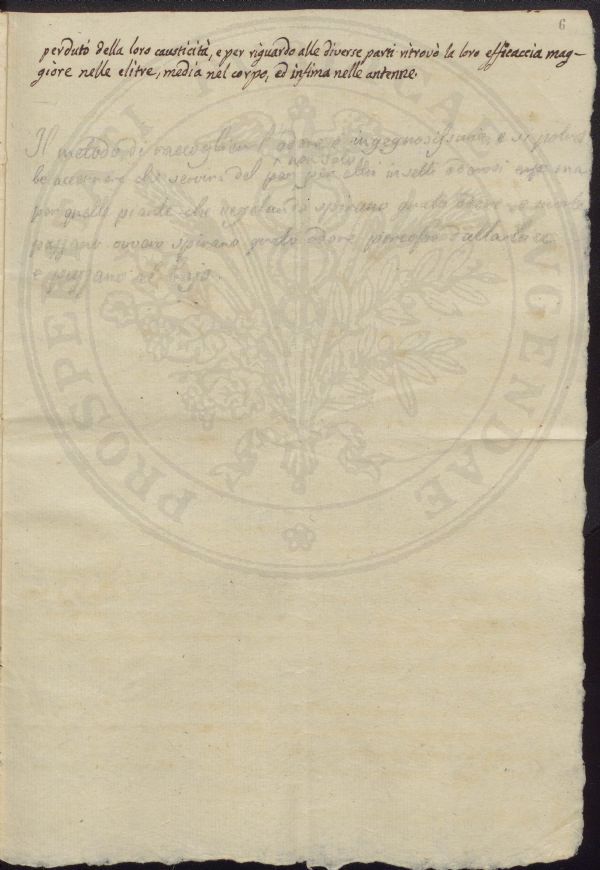 6
perduto della loro causticità, e per riguardo alle diverse parti ritrovò la loro efficaccia mag-
giore nelle elitre, media nel corpo, ed infima nelle antenne.
Il metodo di raccogliere l'odore è ingegnosissimo, e si potreb
non solo
be accennare che servirà del pari per altri insetti odorosi ma
per quelle piante che vegetando spirano grato odore e morte
puzzano ovvero spirano grato odore
e puzzano
PROSPERITATI PUBLICAE AUGENDAE